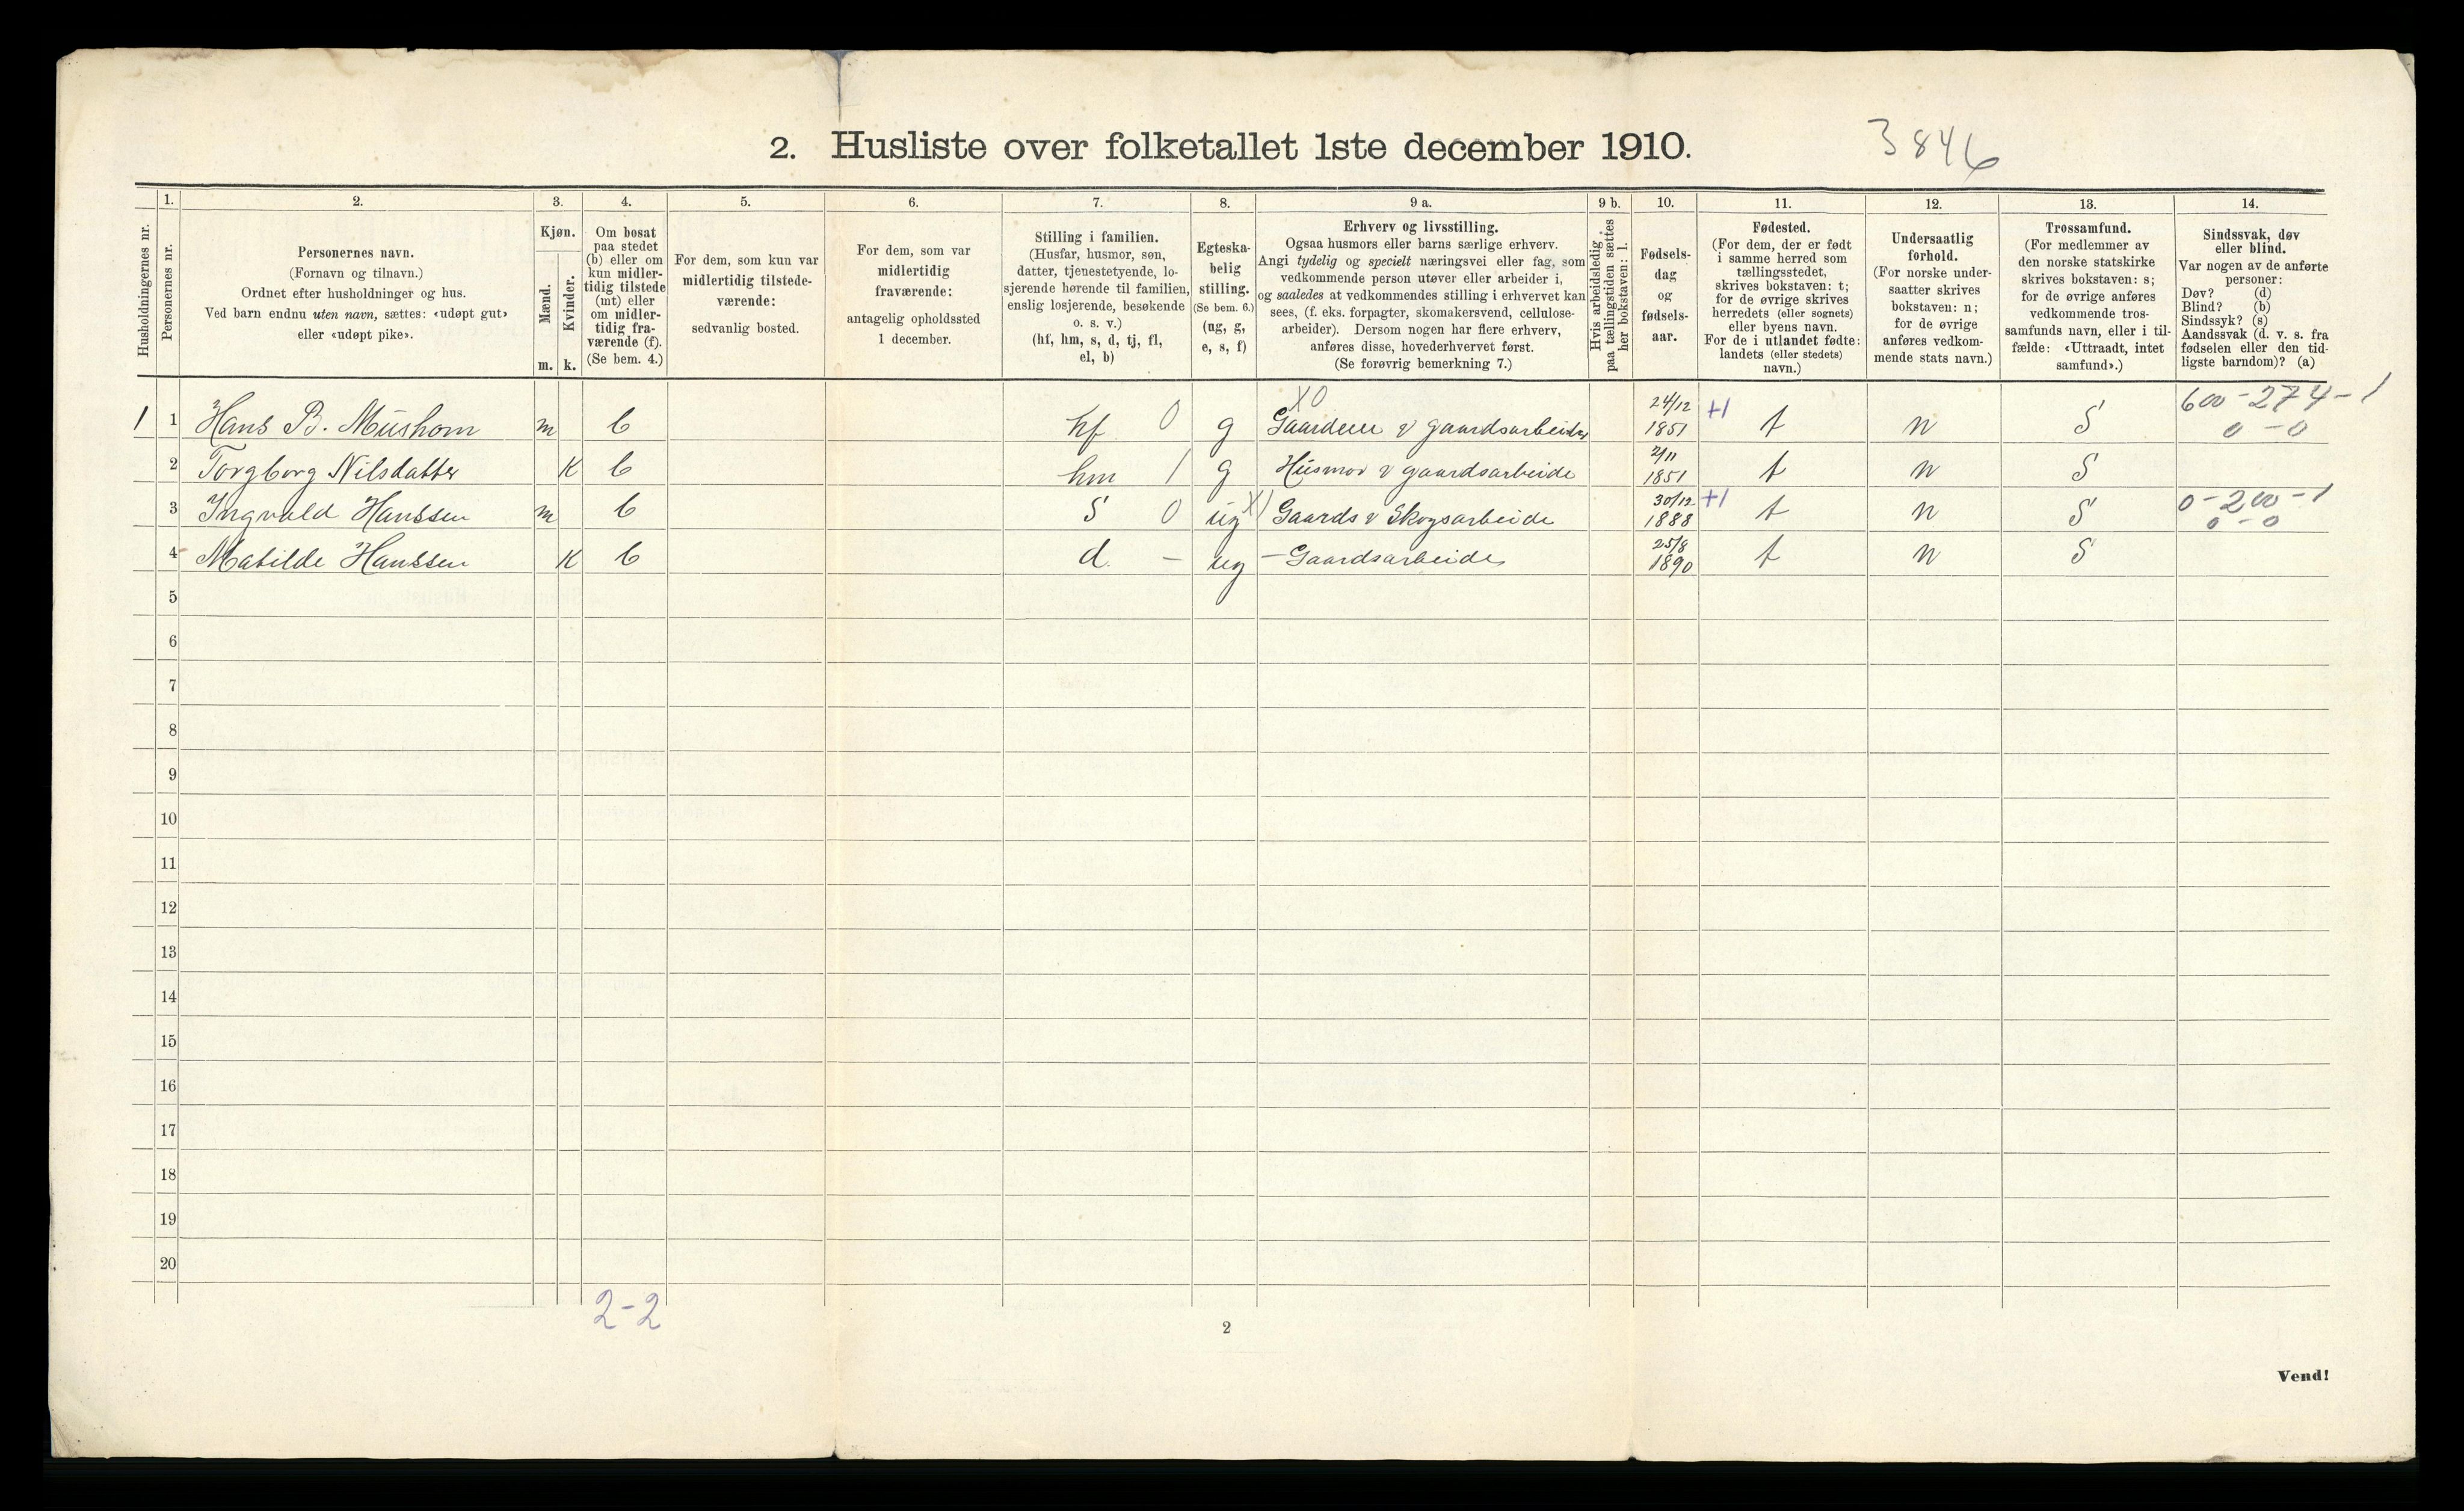 2. Husliste over folketallet 1ste december 1910.
3846
Husholdningernes nr.
1.
Personernes nr.
2.
Personernes navn.
(Fornavn og tilnavn.)
Ordnet efter husholdninger og hus.
Ved barn endnu uten navn, sættes: «udøpt gut»
eller «udøpt pike».
3.
Kjøn.
Mænd.
Kvinder.
m. k.
4.
Om bosat
paa stedet
(b) eller om
kun midler-
tidig tilstede
(mt) eller
om midler-
tidig fra-
værende (f).
(Se bem. 4.)
5.
For dem, som kun var
midlertidig tilstede-
værende:
sedvanlig bosted.
6.
For dem, som var
midlertidig
fraværende:
antagelig opholdssted
1 december.
7.
Stilling i familien.
(Husfar, husmor, søn,
datter, tjenestetyende, lo-
sjerende hørende til familien,
enslig losjerende, besøkende
o. s. v.)
(hf, hm, s, d, tj, fl,
el, b)
8.
Egteska-
belig
stilling.
(Se bem. 6.)
(ug, g,
e, s, f)
9 a.
Erhverv og livsstilling.
Ogsaa husmors eller barns særlige erhverv.
Angi tydelig og specielt næringsvei eller fag, som
vedkommende person utøver eller arbeider i,
og saaledes at vedkommendes stilling i erhvervet kan
sees, (f. eks. forpagter, skomakersvend, cellulose-
arbeider). Dersom nogen har flere erhverv,
anføres disse, hovederhvervet først.
(Se forøvrig bemerkning 7.)
9 b.
Hvis arbeidsledig
paa tællingstiden sættes
her bokstaven: l.
10.
Fødsels-
dag
og
fødsels-
aar.
11.
Fødested.
(For dem, der er født
i samme herred som
tællingsstedet,
skrives bokstaven: t;
for de øvrige skrives
herredets (eller sognets)
eller byens navn.
For de i utlandet fødte:
landets (eller stedets)
navn.)
12.
Undersaatlig
forhold.
(For norske under-
saatter skrives
bokstaven: n;
for de øvrige
anføres vedkom-
mende stats navn.)
13.
Trossamfund.
(For medlemmer av
den norske statskirke
skrives bokstaven: s;
for de øvrige anføres
vedkommende tros-
samfunds navn, eller i til-
fælde: «Uttraadt, intet
samfund».)
14.
Sindssvak, døv
eller blind.
Var nogen av de anførte
personer:
Døv? (d)
Blind? (b)
Sindssyk? (s)
Aandssvak (d. v. s. fra
fødselen eller den tid-
ligste barndom)? (a)
X0 24/12 +1 600-274-1
1 1 Hans B. Mushom m b hf 0 g v gaardsarbeider 1851 t n S 0-0
2 Torgborg Nilsdatter K b hm 1 g Husmor v gaardsarbeide 2/11 1851 t n S
3 Ingvald Hanssen m b S 0 ug X1 Gaards v Skogsarbeide 30/12 1888 +1 t n S 0-200-1
0-0
4 Matilde Hanssen K b d - ug - Gaardsarbeide 25/8 1890 t n S
5
6
7
8
9
10
11
12
13
14
15
16
17
18
19
20
2-2
2
Vend!